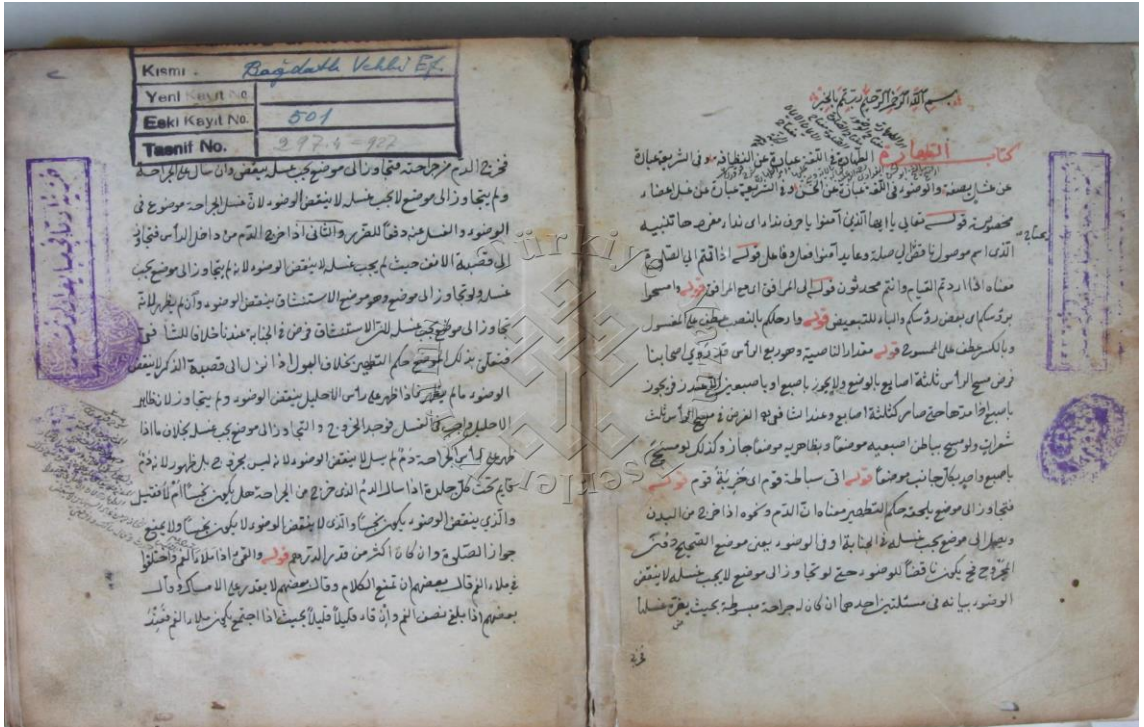 بسم الله الرحمن الرحيم رب تمم بالخير
كتاب الطهارة الطهارة في اللغة عبارة عن النظافة وفي الشريعة عبارة
عن غسل بصفة والوضوء في اللغة عبارة عن الحسن وفي الشريعة عبارة عن غسل اعضاء
مخصوصة قوله تعالى يا ايها الذين آمنوا يا حرف نداء اي نداء معرفة ها تنبيه
الذي اسم موصول ناقص الى صلة وعايد آمنوا فعل وفاعل قوله اذا قمتم الى الصلوة
معناه اذا اردتم القيام وانتم محدثون قوله الى المرافق اي مع المرافق قوله وامسحوا
برؤسكم اي بعض رؤسكم والباء للتبعيض قوله وارجلكم بالنصب عطف على المغسول
وبالكسر عطف على الممسوح قوله مقدار الناصية وهو ربع الرأس قد روي اصحابنا
فرض مسح الرأس ثلثة اصابع بالوضع ولا يجوز باصبع او باصبعين
باصبع اذا مدها حتى صار كثلثة اصابع وعند الشافعي الفرض في مسح الرأس ثلث
شعرات ولو مسح بباطن اصبعيه موضعا وبظاهره موضعا جاز وكذلك لو مسح
باصبع واحد بكل جانب موضعا قوله اتى سباطة قوم اي خربة قوم قوله
فتجاوز الى موضع يلحقه حكم التطهير معناه ان الدم ونحوه اذا خرج من البدن
ووصل الى موضع يجب غسله في الجنابة او في الوضوء يعني موضع الصحيح دون
الجروح يكون ناقضا للوضوء حتى لو تجاوز الى موضع لا يجب غسله لا ينقض
الوضوء بيانه في مسئلتين احدهما ان كان له جراحة مبسوطة بحيث يضره غسلها
Kısmı . Bağdatlı Vehbi Ef.
Yeni Kayıt No.
Eski Kayıt No. 501
Tasnif No. 297.4 = 927
فخرج الدم من جراحته فتجاوز الى موضع يجب غسله ينقض وان سال على الجراحة
ولم يتجاوز الى موضع لا يجب غسله لا ينقض الوضوء لان غسل الجراحة موضوع في
الوضوء والغسل عنه دفعا للضرر والثاني اذا خرج الدم من داخل الرأس فتجاوز
الى قصبة الانف حيث لم يجب غسله لا ينقض الوضوء لانه لم يتجاوز الى موضع يجب
غسله ولو تجاوز الى موضع وهو موضع الاستنشاق ينقض الوضوء وان لم يظهر لانه
تجاوز الى موضع يجب غسله لان الاستنشاق فرض في الجنابة عندنا خلافا للشافعي
فتعلق بذلك الموضع حكم التطهير بخلاف البول اذا نزل الى قصبة الذكر لا ينقض
الوضوء ما لم يظهر فاذا ظهر على رأس الاحليل ينقض الوضوء ولم يتجاوز لان ظاهر
الاحليل واجب الغسل فوجد الخروج والتجاوز الى موضع يجب غسله بخلاف ما اذا
ظهر على رأس الجراحة دم لم يسل لا ينقض الوضوء لانه ليس بخروج بل ظهور لانه دم
قايم تحت كل جلدة اذا سال الدم الذي خرج من الجراحة هل يكون نجسا ام لا فقيل
والذي ينقض الوضوء يكون نجسا والذي لا ينقض الوضوء لا يكون نجسا ولا يمنع
جواز الصلوة وان كان اكثر من قدر الدرهم قوله والقئ اذا ملاء الفم واختلفوا
في ملاء الفم قال بعضهم ان يمنع الكلام وقال بعضهم لا يقدر على الامساك وقال
بعضهم اذا بلغ نصف الفم وان قاء قليلا قليلا بحيث اذا اجتمع يكون ملاء الفم فعند